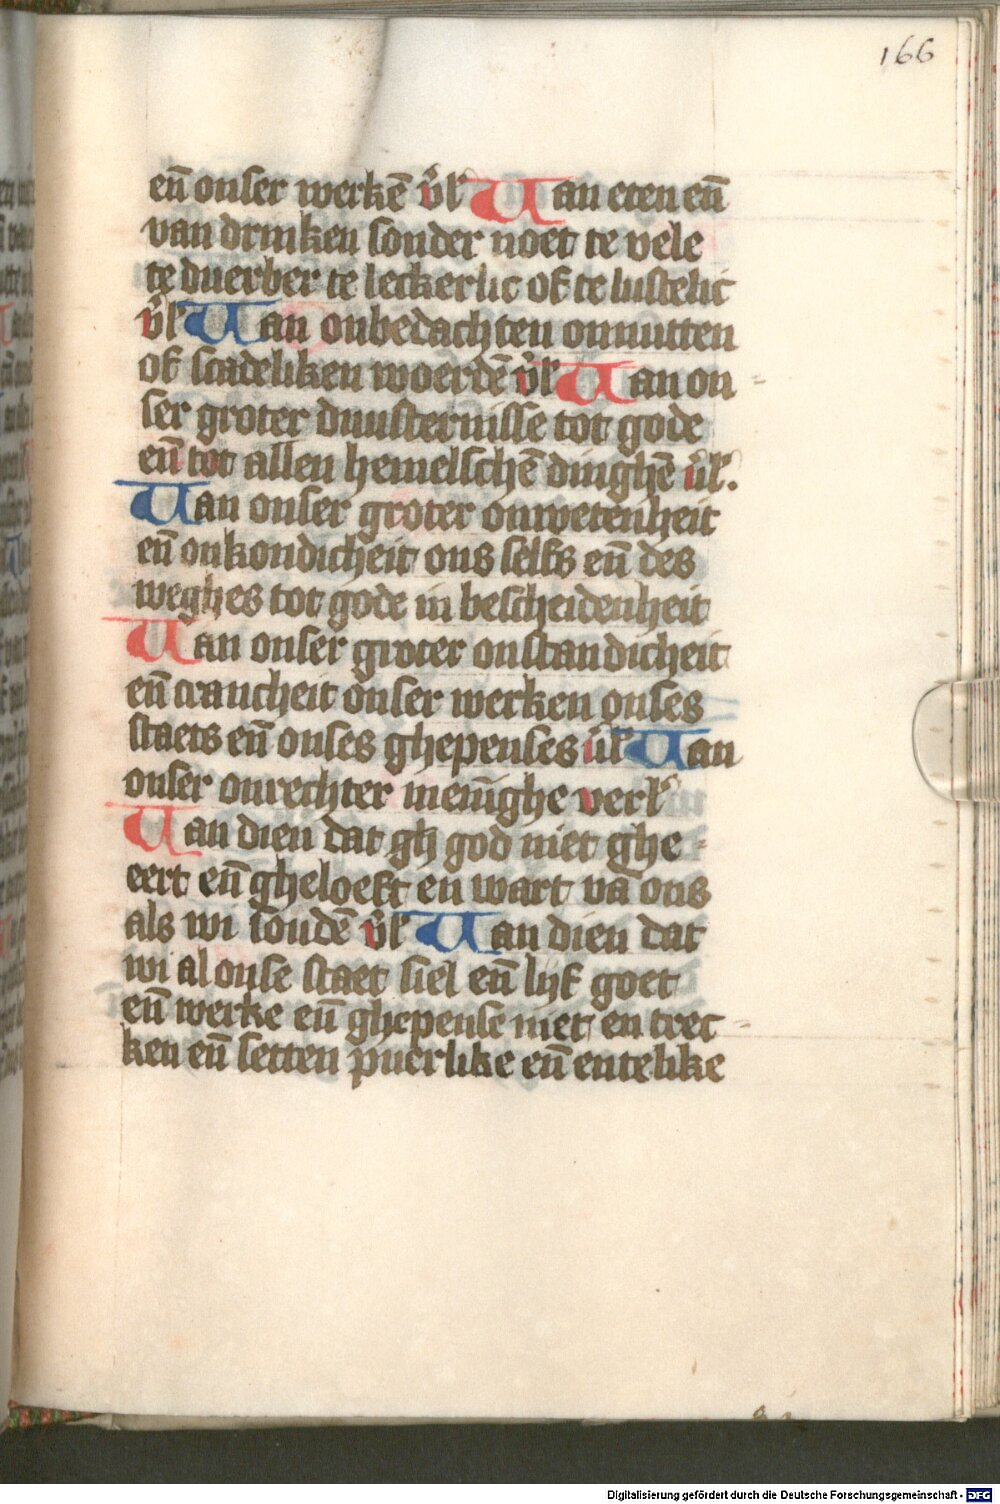 166
eñ onser werkē v̓l Van eten eñ
van drinken sonder noet te vele
te duerber te leckerlic of te lustelic
v̓l Van onbedachten onnutten
of scadeliken woerdē v̓l Van on
ser groter duusternisse tot gode
eñ tot allen hemelschē dinghē v̓l.
Van onser groter onwetenheit
eñ onkondicheit ons selfs eñ des
weghes tot gode in bescheidenheit
Van onser groter onstandicheit
eñ crancheit onser werken onses
staets eñ onses ghepenses v̓l Van
onser onrechter meninghe verl
Van dien dat gh god niet ghe
eert eñ gheloeft en wart vā ons
als wi soudē v̓l Van dien dat
wi al onse staet siel eñ lijf goet
eñ werke eñ ghepense niet en trec
ken eñ setten puerlike eñ entelike
Digitalisierung gefördert durch die Deutsche Forschungsgemeinschaft - DFG